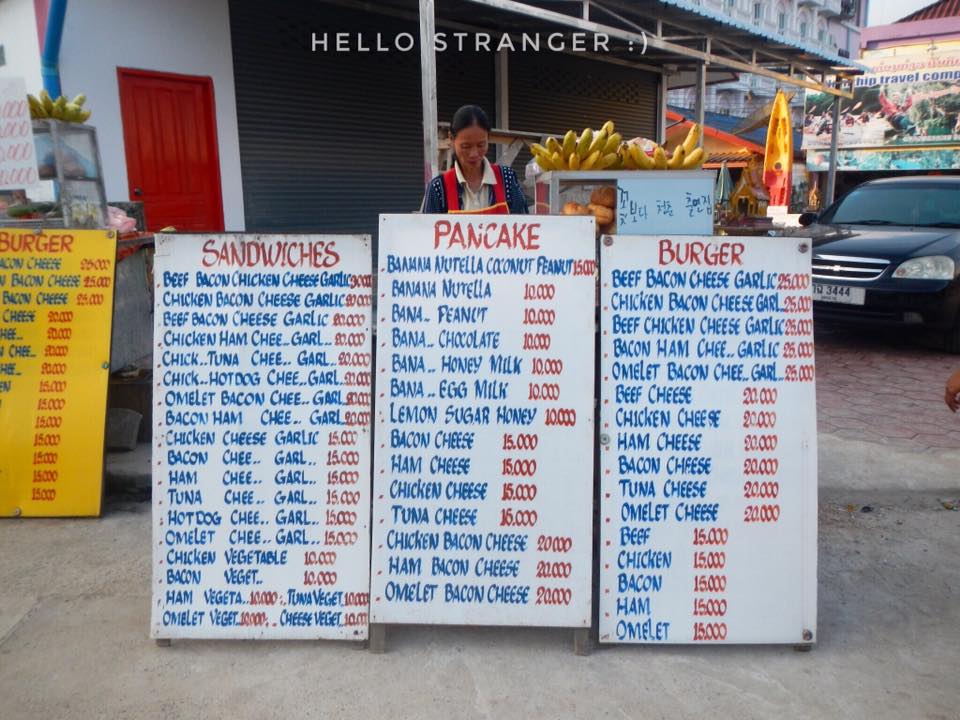 HELLO STRANGER :)
BURGER
ACON CHEESE 25.000
BACON CHEESE 25.000
BACON CHEESE 25.000
CHEESE 20.000
CHEE.. 20.000
CHEE.. 20.000
CHEE... 20.000
HEE.. 20.000
15.000
15.000
15.000
15.000
15.000
SANDWICHES
BEEF BACON CHICKEN CHEESE GARLIC 30.000
CHICKEN BACON CHEESE GARLIC 20.000
BEEF BACON CHEESE GARLIC 20.000
CHICKEN HAM CHEE.. GARL.. 20.000
CHICK..TUNA CHEE.. GARL.. 20.000
CHICK..HOTDOG CHEE..GARL.. 20.000
OMELET BACON CHEE.. GARL.. 20.000
BACON HAM CHEE.. GARL.. 20.000
CHICKEN CHEESE GARLIC 15.000
BACON CHEE.. GARL.. 15.000
HAM CHEE.. GARL.. 15.000
TUNA CHEE.. GARL.. 15.000
HOTDOG CHEE.. GARL.. 15.000
OMELET CHEE.. GARL.. 15.000
CHICKEN VEGETABLE 10.000
BACON VEGET.. 10.000
HAM VEGETA.. 10.000 TUNA VEGET. 10.000
OMELET VEGET. 10.000 CHEESE VEGET. 10.000
PANCAKE
BANANA NUTELLA COCONUT PEANUT 15.000
BANANA NUTELLA 10.000
BANA.. PEANUT 10.000
BANA.. CHOCOLATE 10.000
BANA.. HONEY MILK 10.000
BANA.. EGG MILK 10.000
LEMON SUGAR HONEY 10.000
BACON CHEESE 15.000
HAM CHEESE 15.000
CHICKEN CHEESE 15.000
TUNA CHEESE 15.000
CHICKEN BACON CHEESE 20.000
HAM BACON CHEESE 20.000
OMELET BACON CHEESE 20.000
BURGER
BEEF BACON CHEESE GARLIC 25.000
CHICKEN BACON CHEESE GARL.. 25.000
BEEF CHICKEN CHEESE GARLIC 25.000
BACON HAM CHEE.. GARLIC 25.000
OMELET BACON CHEE.. GARL.. 25.000
BEEF CHEESE 20.000
CHICKEN CHEESE 20.000
HAM CHEESE 20.000
BACON CHEESE 20.000
TUNA CHEESE 20.000
OMELET CHEESE 20.000
BEEF 15.000
CHICKEN 15.000
BACON 15.000
HAM 15.000
OMELET 15.000
꽃보다 청춘 출연집
hip travel comp
3444